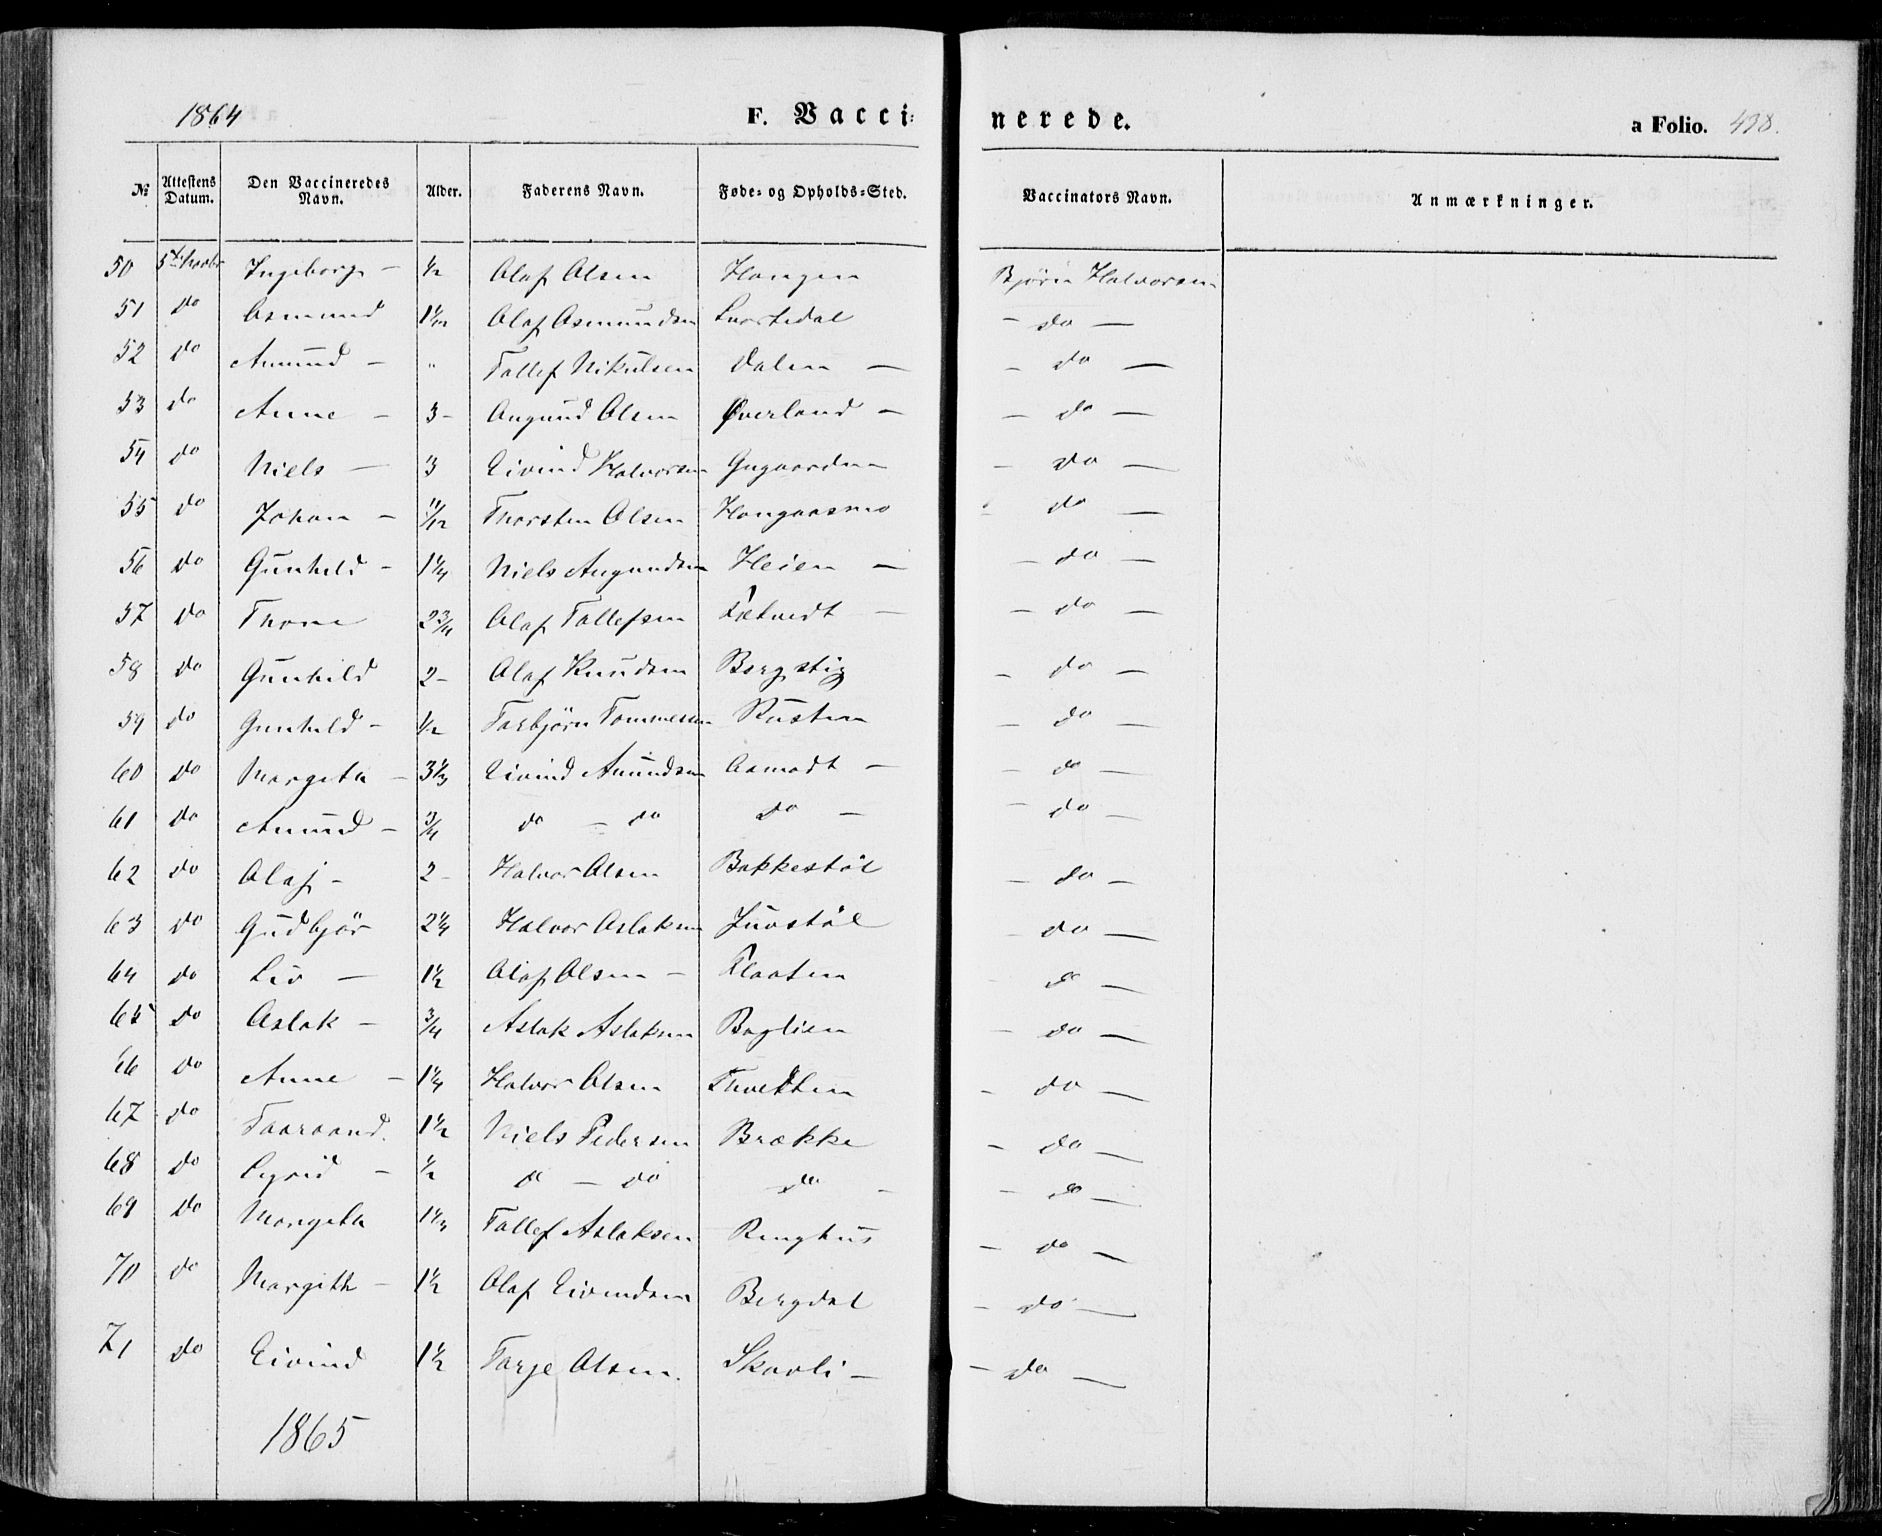 1864 F. Vacci- nerede. a Folio. 438.
№ Attestens Datum. Den Vaccineredes Navn. Alder. Faderens Navn. Føde- og Opholds-Sted. Vaccinators Navn. Anmærkninger.
50 5te Novbr Ingeborg - 1/2 Olaf Olsen Haugen Bjørn Halvorsen
51 do Asmund Olaf Asmundsen - do -
52 do Amund - " Tallef Nikulsen Dalen - - do -
53 do Anne - 3 - Augund Olsen Øverland - - do -
54 do Niels - 3 Eivind Halvorsen - do -
55 do Johan - 11/12 Thorsten Olsen Haugaasmo - do -
56 do Gunhild - 1 1/4 Niels Augundsen Heien - - do -
57 do Thone 2 3/4 Olaf Tallefsen - - do -
58 do Gunhild 2 - Olaf Knudsen Bergstig - do -
59 do Gunhild - 1/2 Torbjørn Tommesen Rusten - do -
60 do Margita - 3 1/3 Eivind Amundsen Aamodt - - do -
61 do Amund - 3/4 do - do do - - do -
62 do Olaf - 2 - Halvor Olsen Bakkestøl - do -
63 do Gudbjør 2 1/4 Halvor Aslaksen Juvstøl - do -
64 do Liv - 1 1/2 Olaf Olsen - Klaaten - do -
65 do Aslak - 3/4 Aslak Aslaksen Baglien - do -
66 do Anne - 1 1/4 Halvor Olsen Thveiten - do -
67 do Taaraand. 1 1/2 Niels Pedersen Brække - do -
68 do Sigrid - 1/2 do - do do - - do -
69 do Margita Tallef Aslaksen Ringhus - do -
70 do Margith - 1 1/2 Olaf Eivindsen Bergdal - do -
71 do Eivind 1 1/2 Tarje Olsen. Skavli - - do -
1865